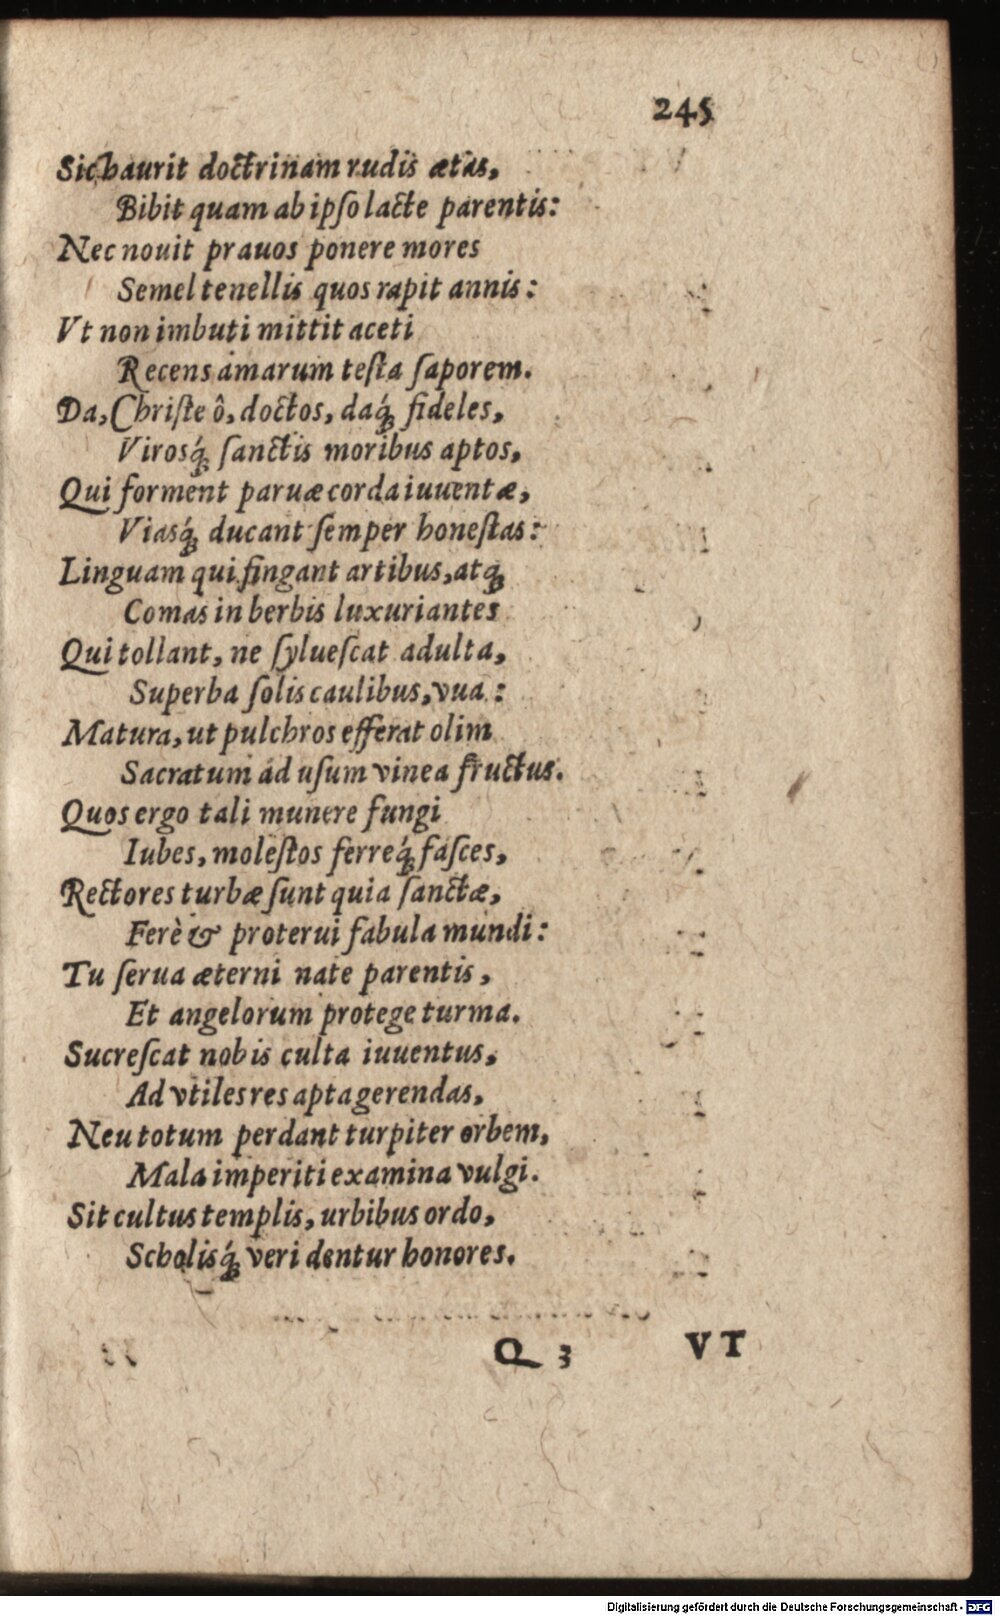 245
Sic haurit doctrinam rudis ætas,
Bibit quam ab ipſo lacte parentis:
Nec nouit prauos ponere mores
Semel tenellis quos rapit annis:
Vt non imbuti mittit aceti
Recens amarum teſta ſaporem.
Da, Chriſte ô, doctos, daq́; fideles,
Virosq́; ſanctis moribus aptos,
Qui forment paruæ corda iuuentæ,
Viasq́; ducant ſemper honeſtas:
Linguam qui fingant artibus, atq;
Comas in herbis luxuriantes
Qui tollant, ne ſylueſcat adulta,
Superba ſolis caulibus, vua:
Matura, ut pulchros efferat olim
Sacratum ad uſum vinea fructus.
Quos ergo tali munere fungi
Iubes, moleſtos ferreq́; faſces,
Rectores turbæ ſunt quia ſanctæ,
Ferè & proterui fabula mundi:
Tu ſerua æterni nate parentis,
Et angelorum protege turma.
Sucreſcat nobis culta iuuentus,
Ad vtiles res apta gerendas,
Neu totum perdant turpiter orbem,
Mala imperiti examina vulgi.
Sit cultus templis, urbibus ordo,
Scholisq́; veri dentur honores.
Q 3 VT
Digitalisierung gefördert durch die Deutsche Forschungsgemeinschaft - DFG